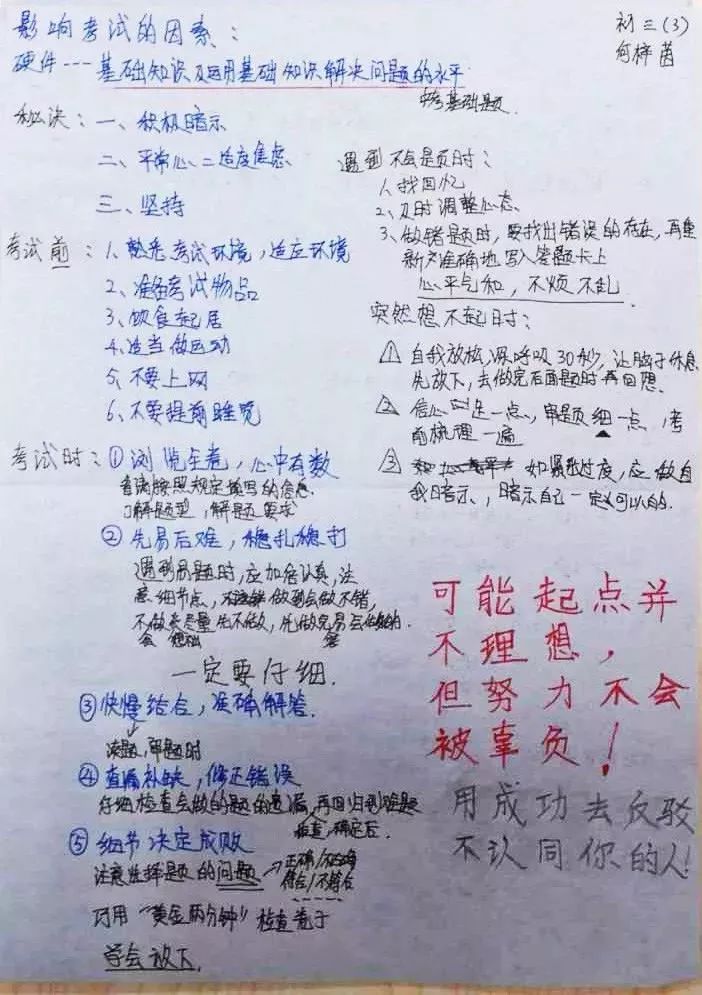 影响考试的因素：
初三(3)
何梓茵
硬件---基础知识及运用基础知识解决问题的水平
中考基础题
秘诀：一、积极暗示
二、平常心、二适度焦虑
三、坚持
考试前：1、熟悉考试环境，适应环境
2、准备考试物品
3、饮食起居
4、适当做运动
5、不要上网
6、不要提前睡觉
考试时：①浏览全卷，心中有数
查漏按照规定填写的信息
了解题型，解题要求
②先易后难，稳扎稳打
遇到易题时，应加倍认真，注
意细节点，做到会做不错，
不做尽量先不做，先做完易会做的
会
一定要仔细.
③快慢结合，准确解答.
读题，审题时
④查漏补缺，修正错误
仔细检查会做的题的遗漏，再回归到难题
检查，确定后.
⑤细节决定成败
注意选择题的问题→正确/不正确
符合/不符合
巧用“黄金两分钟”检查卷子
学会放下.
遇到不会是页时：
1、找回忆
2、及时调整心态
3、做错题时，要找出错误的存在，再重
新准确地写入答题卡上
心平气和，不烦不乱.
突然想不起时：
①自我放松，深呼吸30秒，让脑子休息
先放下，去做完后面题时再回想.
②信心足一点，审题细一点，考
前梳理一遍
③如紧张过度，应做自
我暗示，暗示自己一定可以的.
可能起点并
不理想，
但努力不会
被辜负！
用成功去反驳
不认同你的人！